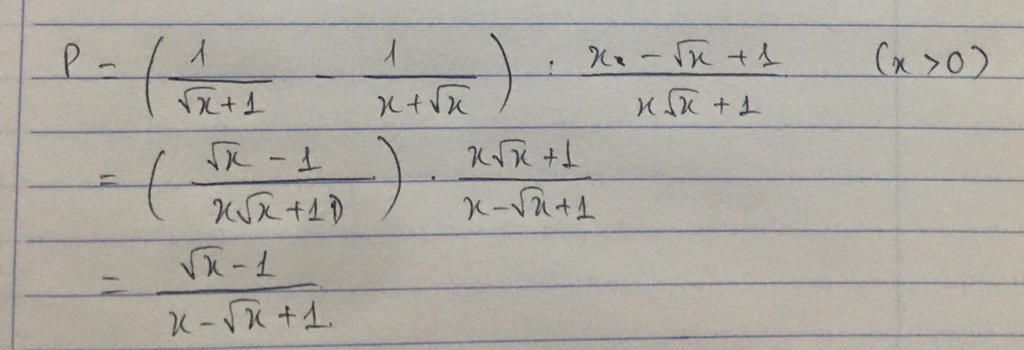 P = ( 1/(√x+1) - 1/(x+√x) ) : (x - √x + 1)/(x√x + 1) (x > 0)
= ( (√x - 1)/(x√x + 1) ) . (x√x + 1)/(x - √x + 1)
= (√x - 1)/(x - √x + 1)